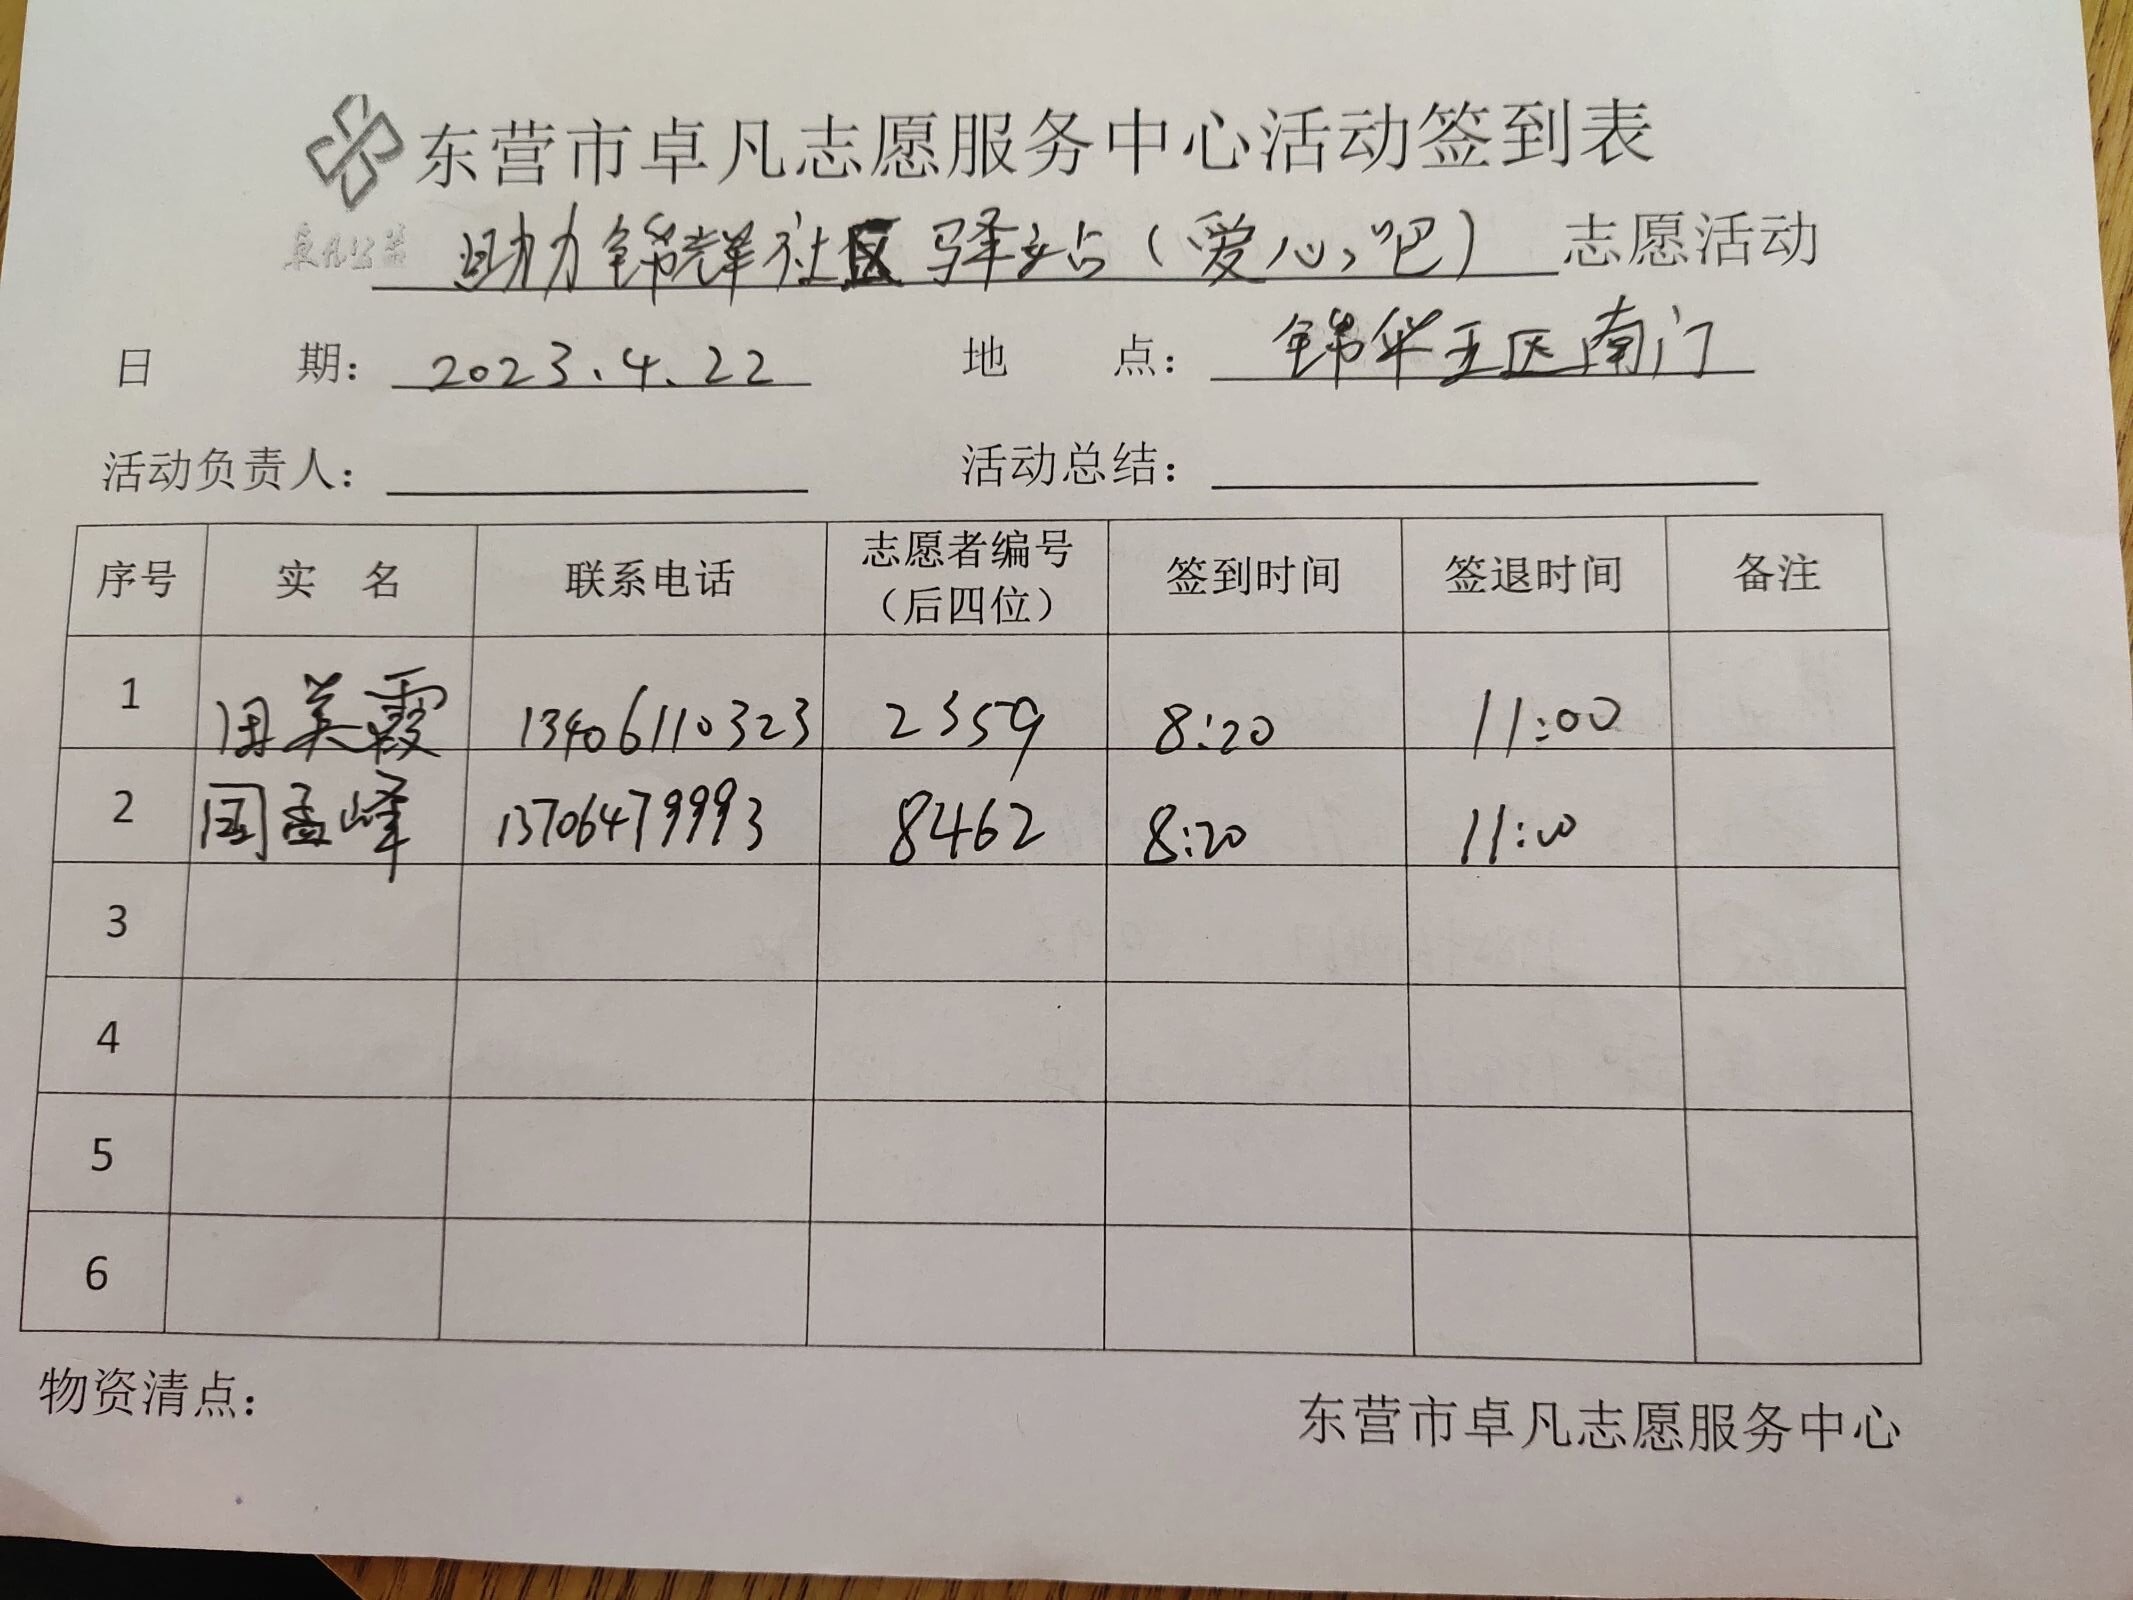 东营市卓凡志愿服务中心活动签到表
卓凡公益 助力锦辉社区驿站（爱心吧） 志愿活动
日期： 2023.4.22 地点： 锦华五区南门
活动负责人： 活动总结：
序号 实名 联系电话 志愿者编号（后四位） 签到时间 签退时间 备注
1 田美霞 13406110323 2359 8:20 11:00
2 周孟峰 13706479993 8462 8:20 11:00
3
4
5
6
物资清点：
东营市卓凡志愿服务中心